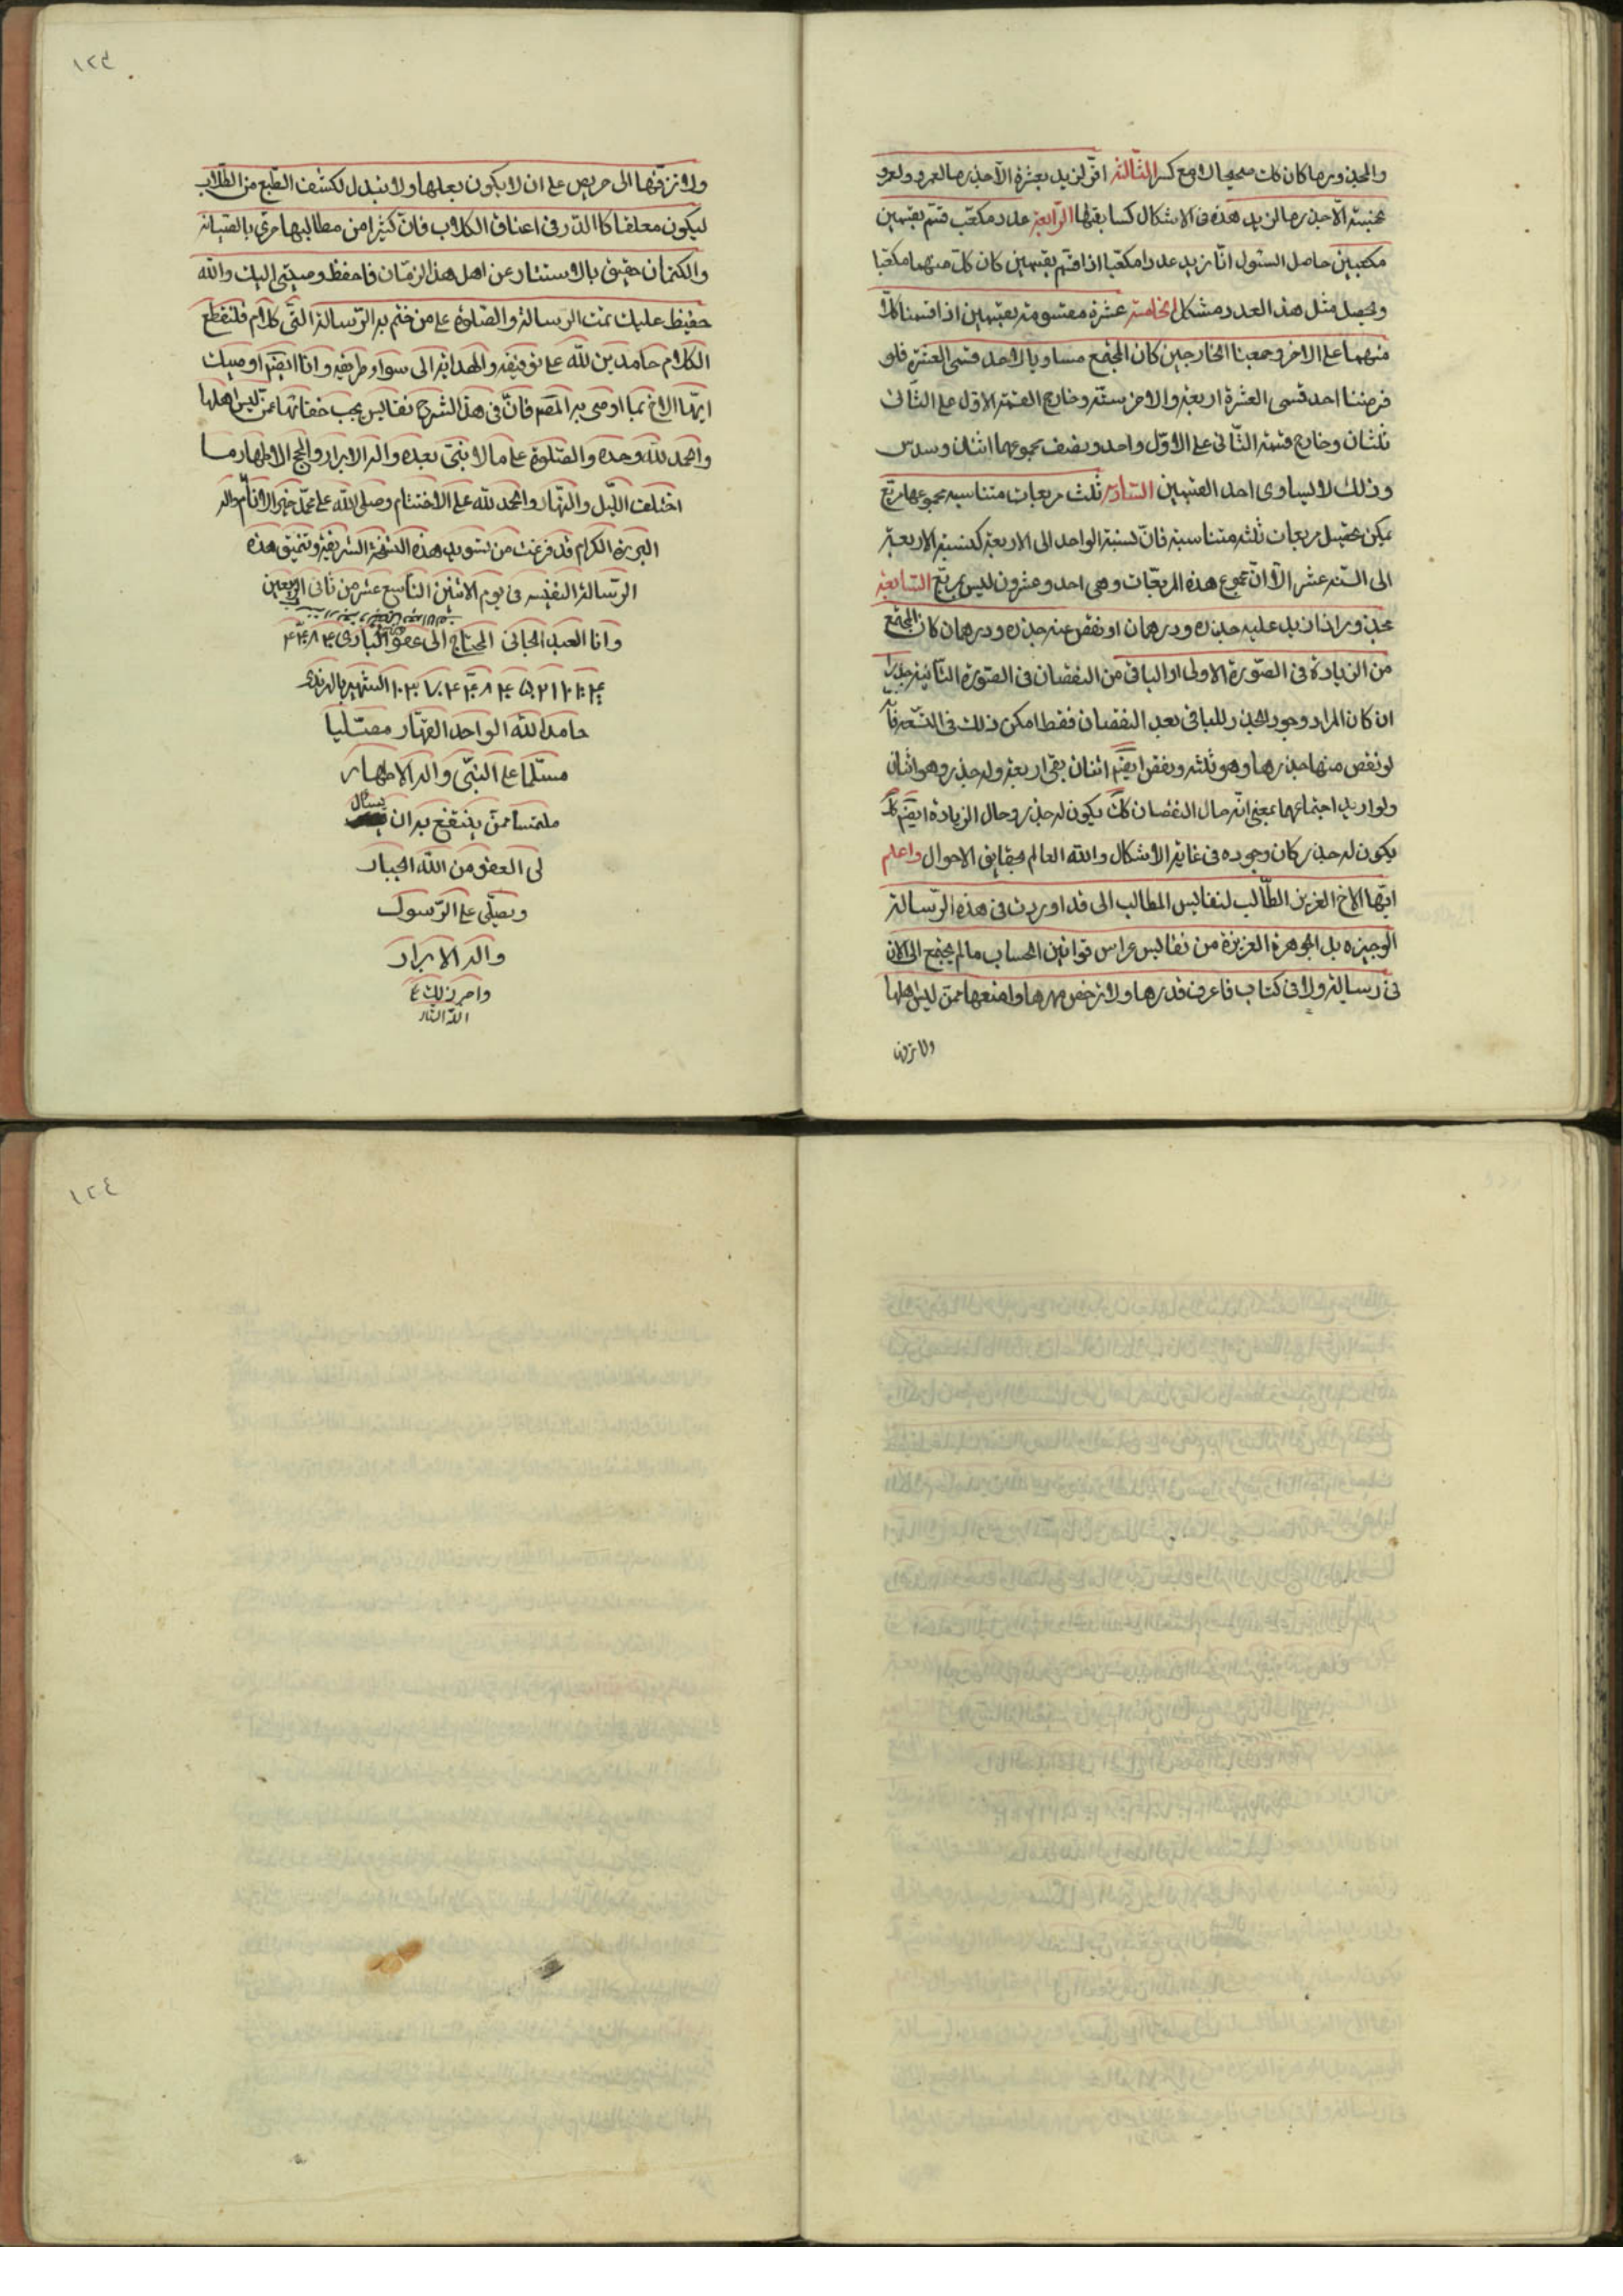 والجذور مما كان كك صحيحا لا مع كسر الثالثة اقر لزيد بعشرة الا جذر ما لعمرو ولعمرو
بخمسة الا جذر ما لزيد هذه فى الاشكال كسابقتها الرابعة عدد مكعب قسم بقسمين
مكعبين حاصل السئول انا نريد عددا مكعبا اذا قسم بقسمين كان كل منهما مكعبا
وتحصيل مثل هذا العدد مشكل الخامسة عشرة مقسومة بقسمين اذا قسمنا كلا
منهما على الاخر وجمعنا الخارجين كان المجتمع مساويا لاحد قسمى العشرة فلو
فرضنا احد قسمى العشرة اربعة والاخر ستة وخارج القسمة الاول على الثانى
ثلثان وخارج قسمة الثانى على الاول واحد ونصف مجموعهما اثنان وسدس
وذلك لا يساوى احد القسمين السادسة ثلث مربعات متناسبة مجموعها مربع
يمكن تحصيل مربعات ثلثه متناسبة فان نسبة الواحد الى الاربعة كنسبة الاربعة
الى الستة عشر الا ان مجموع هذه المربعات وهى احد وعشرون ليس بمربع السابعة
مجذور اذا زيد عليه جذره ودرهمان او نقص عنه جذره ودرهمان كان المجتمع
من الزيادة فى الصورة الاولى او الباقى من النقصان فى الصورة الثانية جذرا
ان كان المراد وجود الجذر للباقى بعد النقصان فقط امكن ذلك فى التسعة فانه
لو نقص منها جذرها وهو ثلثه ونقص ايضا اثنان بقى اربعة وله جذر وهو اثنان
ولو اريد اجتماعهما بمعنى انه حال النقصان كك يكون له جذر وحال الزيادة ايضا كك
يكون له جذر كان وجوده فى غاية الاشكال والله العالم بحقايق الاحوال واعلم
ايها الاخ العزيز الطالب لنفايس المطالب انى قد اوردت فى هذه الرسالة
الوجيزه بل الجوهرة العزيزة من نفايس عرايس قوانين الحساب ما لم يجتمع الى الان
فى رسالة ولا فى كتاب فاعرف قدرها ولا ترخص مهرها وامنعها ممن ليس اهلها
ولا تزفها
١٢٣
ولا تزفها الى حريص على ان لا يكون بعلها ولا تبذل لكشف الطبع من الطلاب
ليكون معلقا كالدر فى اعناق الكلاب فان كثيرا من مطالبها حرى بالصيانة
والكتمان حقيق بالاستتار عن اهل هذا الزمان فاحفظ وصيتى اليك والله
حفيظ عليك تمت الرسالة والصلوة على من ختم به الرسالة التى كلام فلنقطع
الكلام حامدين لله على توفيقه والهداية الى سواء طريقه وانا ايضا اوصيك
ايها الاخ بما اوصى به المص فان فى هذا الشرح نفايس يجب خفائها عمن ليس اهلها
والحمد لله وحده والصلوة على ما لا نبى بعده واله الابرار والحجج الاطهار ما
اختلف الليل والنهار والحمد لله على الاختتام وصلى الله على محمد خير الانام واله
البررة الكرام قد فرغت من تسويد هذه النسخة الشريفة وتنميق هذه
الرسالة النفيسه فى يوم الاثنين التاسع عشر من ثانى الربيعين
وانا العبد الجانى المحتاج الى عفو البارى
الشهير بالمرندى
حامدا لله الواحد القهار مصليا
مسلما على النبى واله الاطهار
ملتمسا ممن ينتفع به ان يسال
لى العفو من الله الجبار
ويصلى على الرسول
واله الابرار
١٢٤